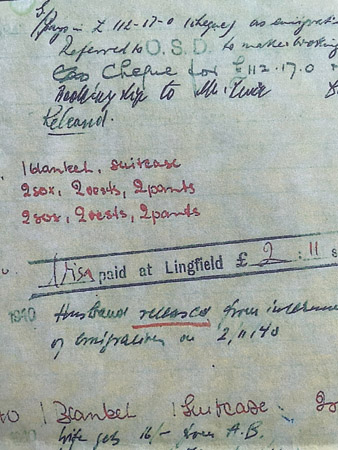 £112-17-0 (cheque) as emigration
Referred to O.S.D. to make booking
Cheque for £112.17.0
Booking slip to Mr.
Released.
1 blanket, suitcase
2 sox, 2 vests, 2 pants
2 sox, 2 vests, 2 pants
paid at Lingfield £ 2 : 11 s
1940 Husband released from internm
of emigration on 2/11/40
40 1 Blanket 1 Suitcase.
Wife gets 16/- from A.B.